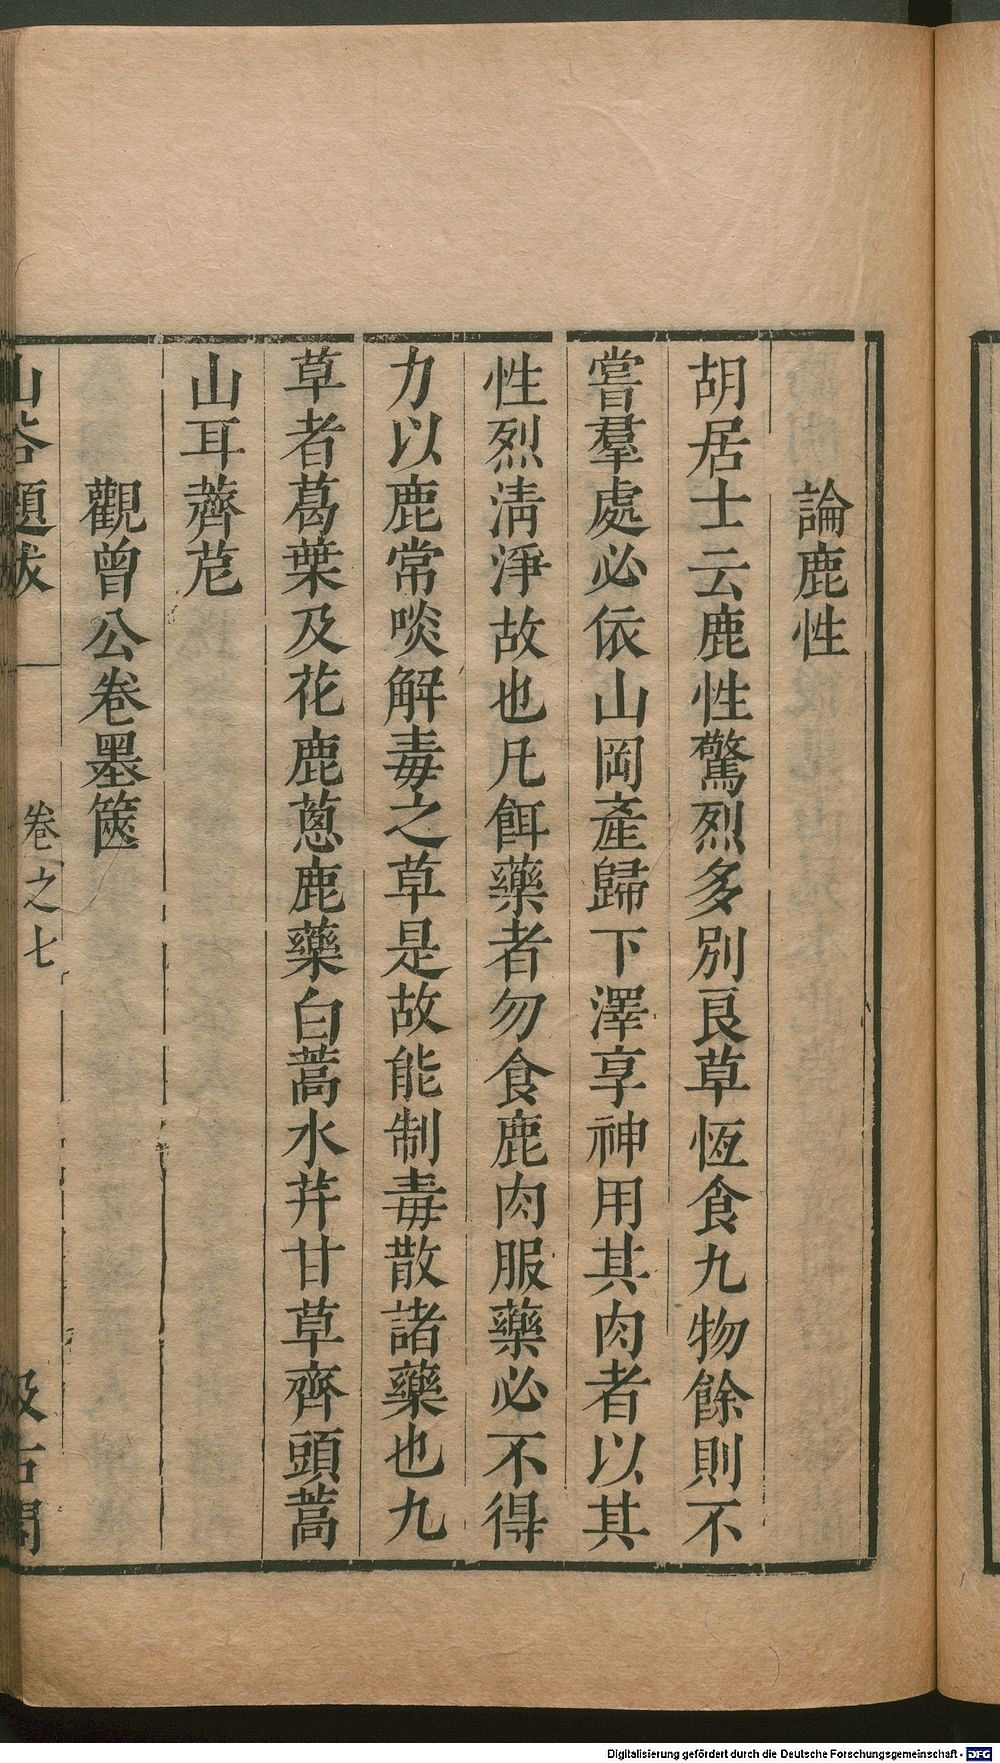 論鹿性
胡居士云鹿性驚烈多別良草恆食九物餘則不
嘗羣處必依山岡產歸下澤享神用其肉者以其
性烈淸淨故也凡餌藥者勿食鹿肉服藥必不得
力以鹿常啖解毒之草是故能制毒散諸藥也九
草者葛葉及花鹿蔥鹿藥白蒿水芹甘草齊頭蒿
山耳薺苨
觀曾公卷墨篋
山谷題跋
卷之七
汲古閣
Digitalisierung gefördert durch die Deutsche Forschungsgemeinschaft - DFG